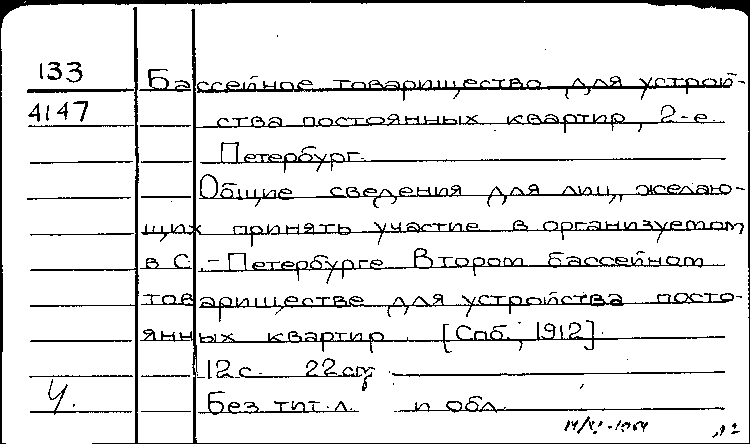 133 Бассейное товарищество для устрой-
4147 ства постоянных квартир, 2-е.
Петербург.
Общие сведения для лиц, желаю-
щих принять участие в организуемом
в С.-Петербурге Втором бассейном
товариществе для устройства посто-
янных квартир. [Спб., 1912].
12 с. 22 см
Ч. Без тит. л. и обл.